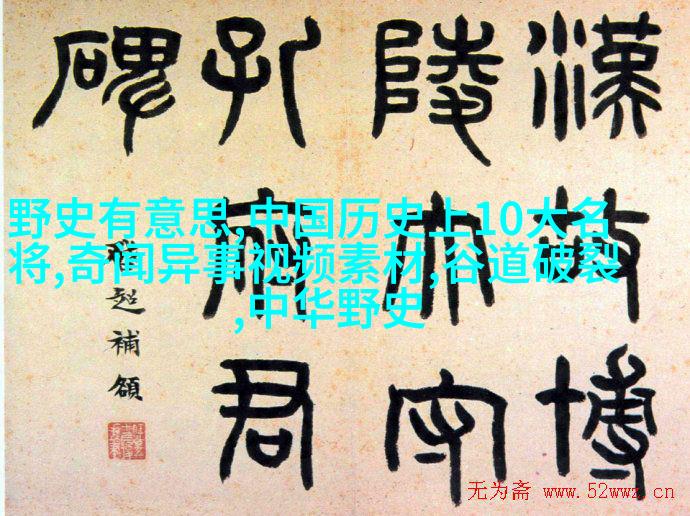 漢故博
陵太守
孔府君
碑
超補
野史有意思,中国历史上10大名
将,奇闻异事视频素材,谷道破裂
,中华野史
无为斋 www.52wwz.cn